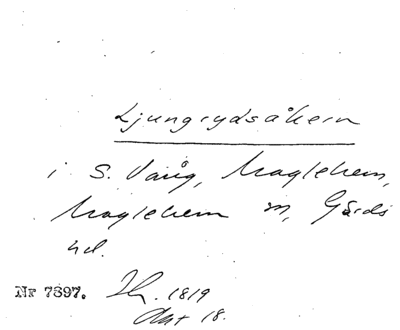 Ljungrydsåkern
i S. Vång, Maglehem,
Maglehem sn, Gärds
hd.
Nr 7897. Sk. 1819
Akt 18.